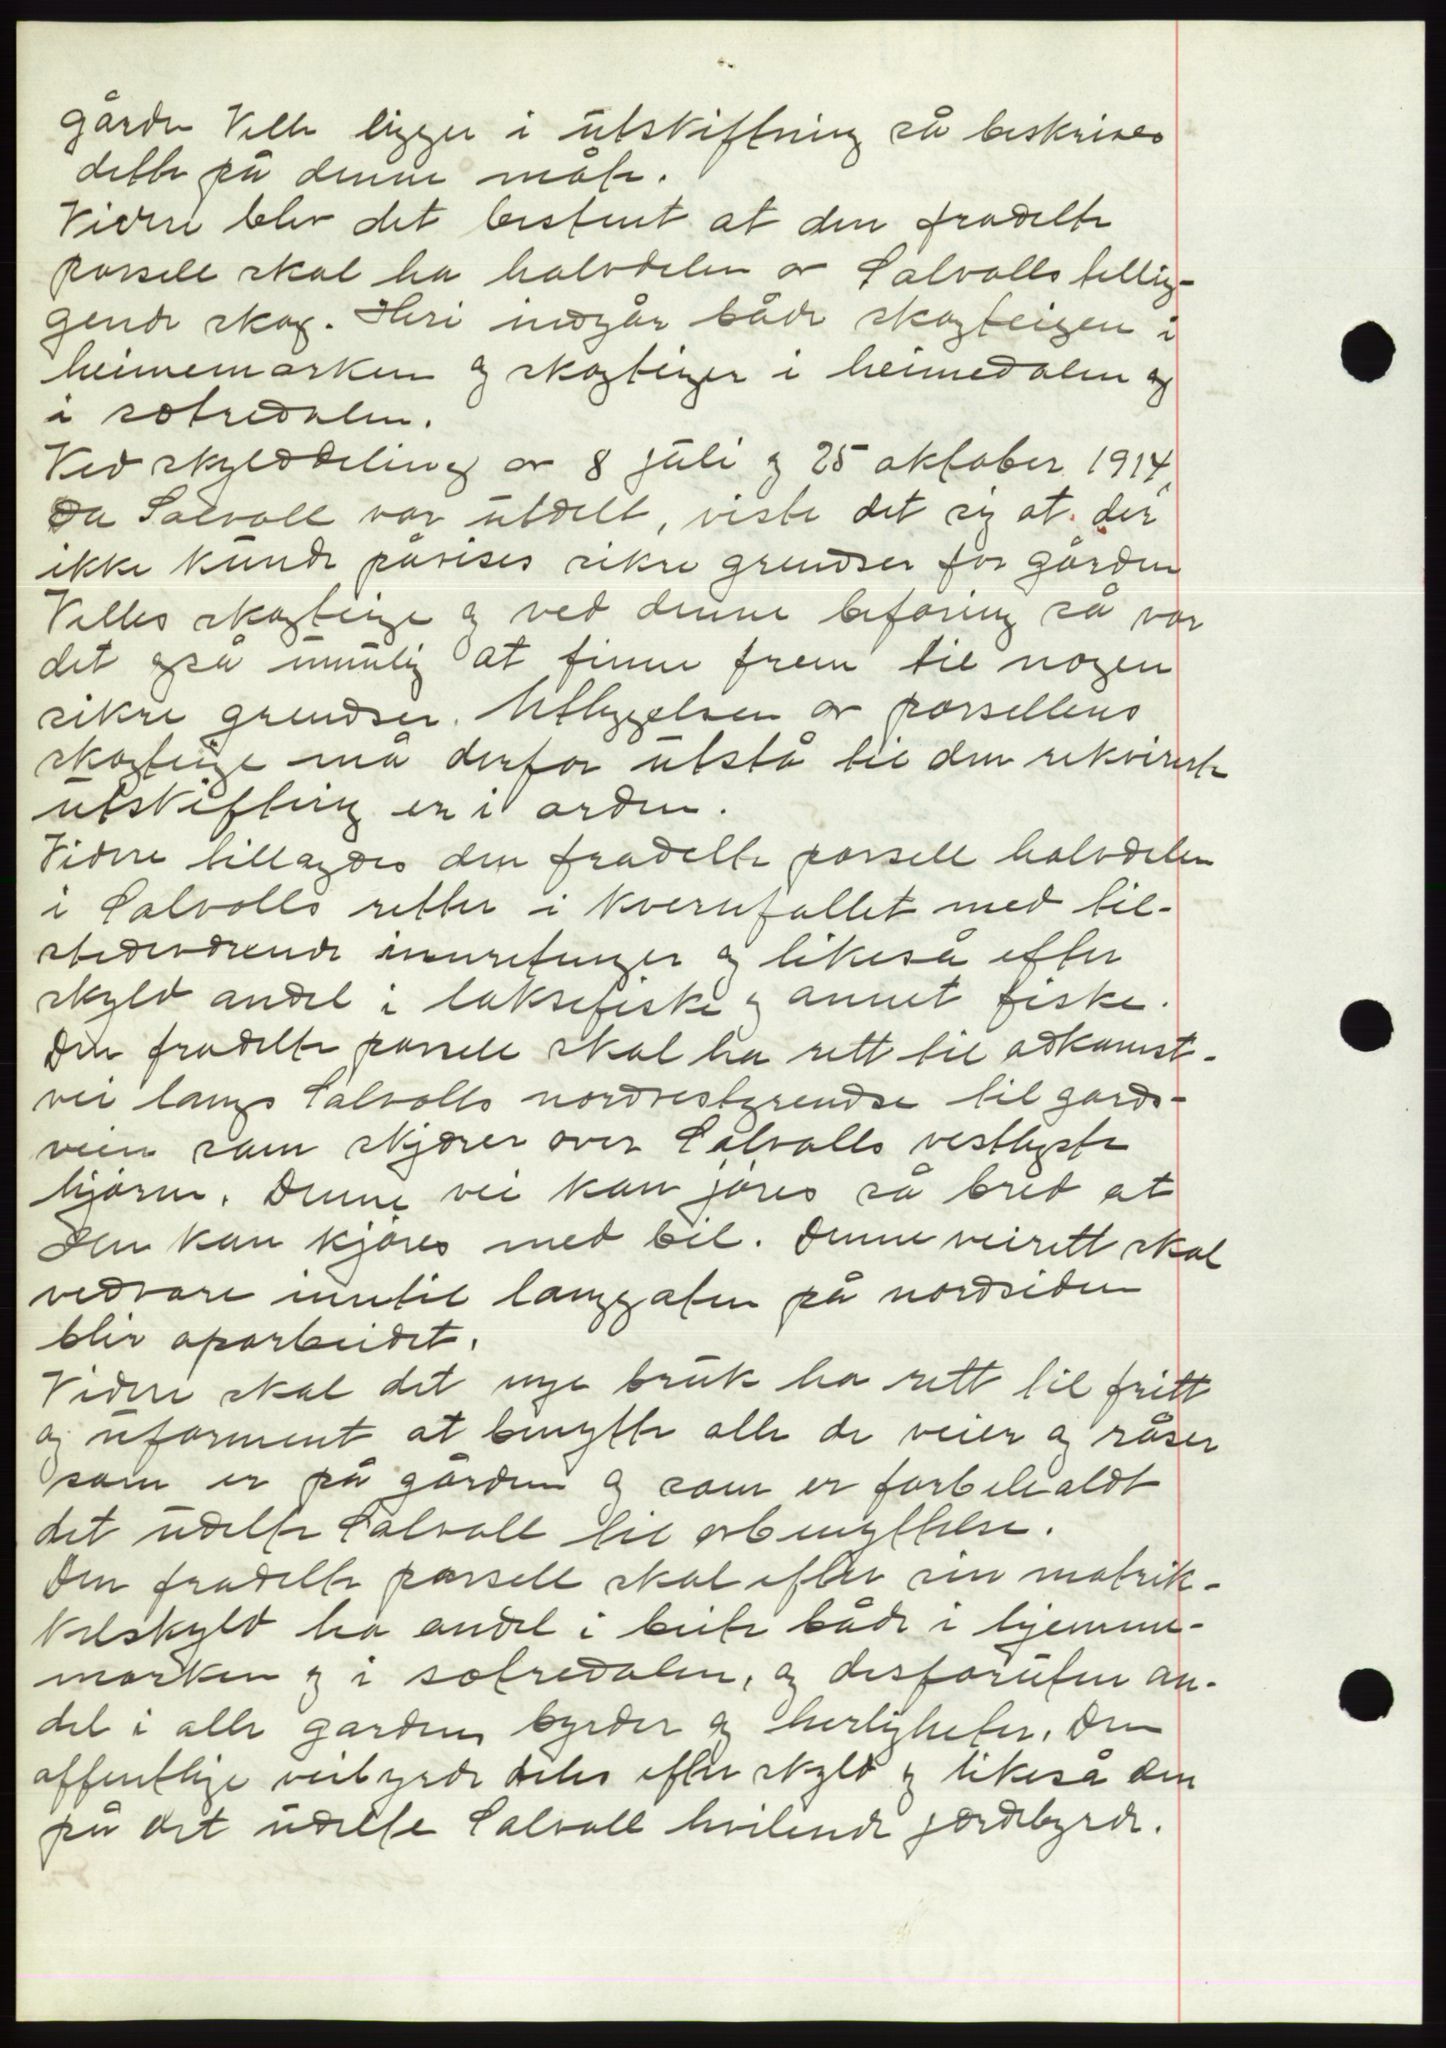 gården Velle ligger i utskiftning så beskrives
dette på denne måte.
Videre blev det bestemt at den fradelte
parsell skal ha halvdelen av Salvolls tillig-
gende skog. Heri indgår både skogteigen i
heimemarken og skogteiger i heimedalen og
i sætredalen.
Ved skylddeling av 8 juli og 25 oktober 1914,
Da Salvoll var utdelt, viste det sig at der
ikke kunde påvises sikre grendser for gården
Velles skogteige og ved denne befaring så var
det også umulig at finne frem til nogen
sikre grendser. Utlyggelsen av parsellens
skogteige må derfor utstå til den rekvirerte
utskiftning er i orden.
Videre tillagdes den fradelte parsell halvdelen
i Salvolls retter i kvernfallet med til-
stedeværende innretunger og likeså efter
skyld andel i laksefiske og annet fiske.
Den fradelte parsell skal ha rett til adkomst-
vei langs Salvolls nordvestgrendse til gards-
veien som skjærer over Salvolls vestligste
hjørne. Denne vei kan jøres så bred at
den kan kjøres med bil. Denne veirett skal
vedvare inntil langgaten på nordsiden
blir oparbeidet.
Videre skal det nye bruk ha rett til fritt
og uforment at benytte alle de veier og råser
som er på gården og som er forbeholdt
det udelte Salvoll til avbenyttelse.
Den fradelte parsell skal efter sin matrik-
kelskyld ha andel i beite både i hjemme-
marken og i sætredalen, og desforuten an-
del i alle gardens byrder og herligheter. Den
offentlige veibyrde deles efter skyld og likeså den
på det udelte Salvoll hvilende jordebyrde.